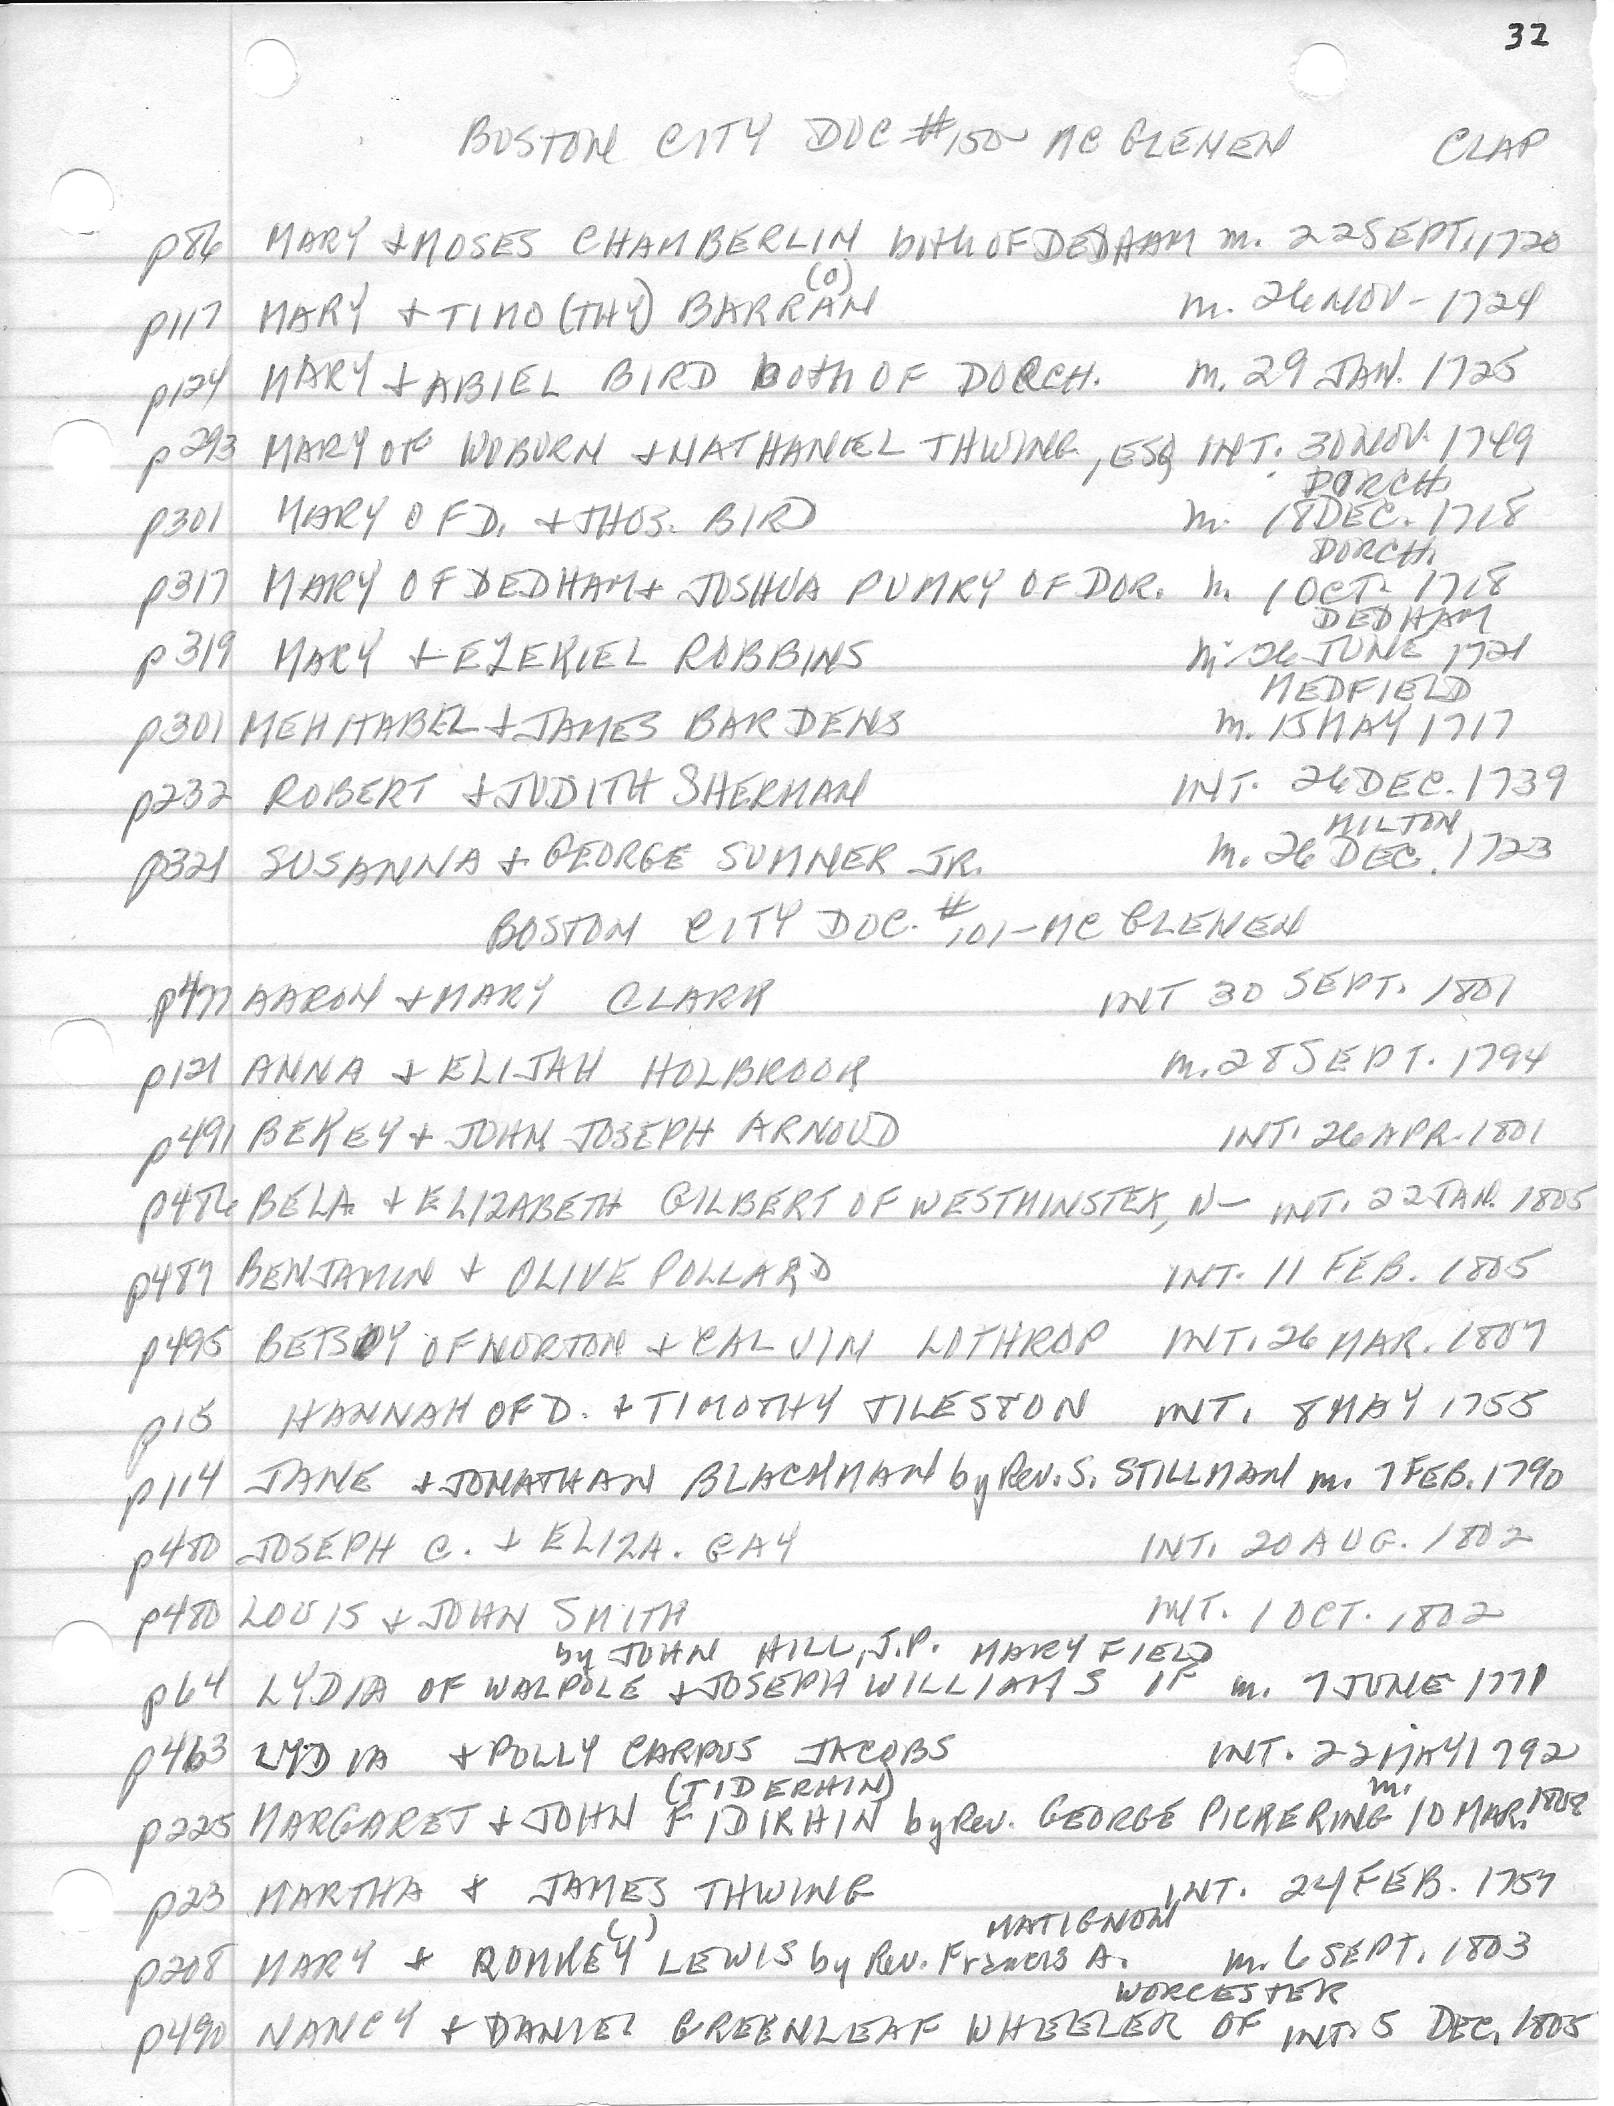 32
BOSTON CITY DOC #150- MC GLENEN CLAP
p86 MARY + MOSES CHAMBERLIN both OF DEDHAM m. 22 SEPT. 1720
(O)
p117 MARY + TIMO(THY) BARRAN m. 26 NOV - 1724
p124 MARY + ABIEL BIRD both OF DORCH. m. 29 JAN. 1725
p293 MARY OF WOBURN + NATHANIEL THWING, ESQ INT. 30 NOV. 1749
DORCH.
p301 MARY OF D. + THOS. BIRD m. 18 DEC. 1718
DORCH.
p317 MARY OF DEDHAM + JOSHUA PUMRY OF DOR. m. 1 OCT. 1718
DEDHAM
p319 MARY + EZEKIEL ROBBINS m. 26 JUNE 1721
MEDFIELD
p301 MEHITABEL + JAMES BARDENS m. 15 MAY 1717
p232 ROBERT + JUDITH SHERMAN INT. 26 DEC. 1739
MILTON
p321 SUSANNA + GEORGE SUMNER JR. m. 26 DEC. 1723
BOSTON CITY DOC. #101- MC GLENEN
p477 AARON + MARY CLARK INT 30 SEPT. 1801
p121 ANNA + ELIJAH HOLBROOK m. 28 SEPT. 1794
p491 BEKEY + JOHN JOSEPH ARNOUD INT. 26 APR. 1801
p486 BELA + ELIZABETH GILBERT OF WESTMINSTER, N- INT. 22 JAN. 1805
p487 BENJAMIN + OLIVE POLLARD INT. 11 FEB. 1805
p495 BETSY OF NORTON + CALVIN LOTHROP INT. 26 MAR. 1807
p15 HANNAH OF D. + TIMOTHY TILESTON INT. 8 MAY 1755
p114 JANE + JONATHAN BLACHMAN by Rev. S. STILLMAN m. 7 FEB. 1790
p480 JOSEPH C. + ELIZA. GAY INT. 20 AUG. 1802
p480 LOUIS + JOHN SMITH INT. 1 OCT. 1802
by JOHN HILL, J.P. MARYFIELD
p64 LYDIA OF WALPOLE + JOSEPH WILLIAMS OF m. 7 JUNE 1771
p463 LYDIA + POLLY CARPUS JACOBS INT. 22 MAY 1792
(TIDERHIN) m.
p225 MARGARET + JOHN FIDIRHIN by Rev. GEORGE PICKERING 10 MAR. 1808
p23 MARTHA + JAMES THWING INT. 24 FEB. 1757
( ) MATIGNON
p208 MARY + ROMKEY LEWIS by Rev. Francis A. m. 6 SEPT. 1803
WORCESTER
p490 NANCY + DANIEL GREENLEAF WHEELER OF INT. 5 DEC. 1805